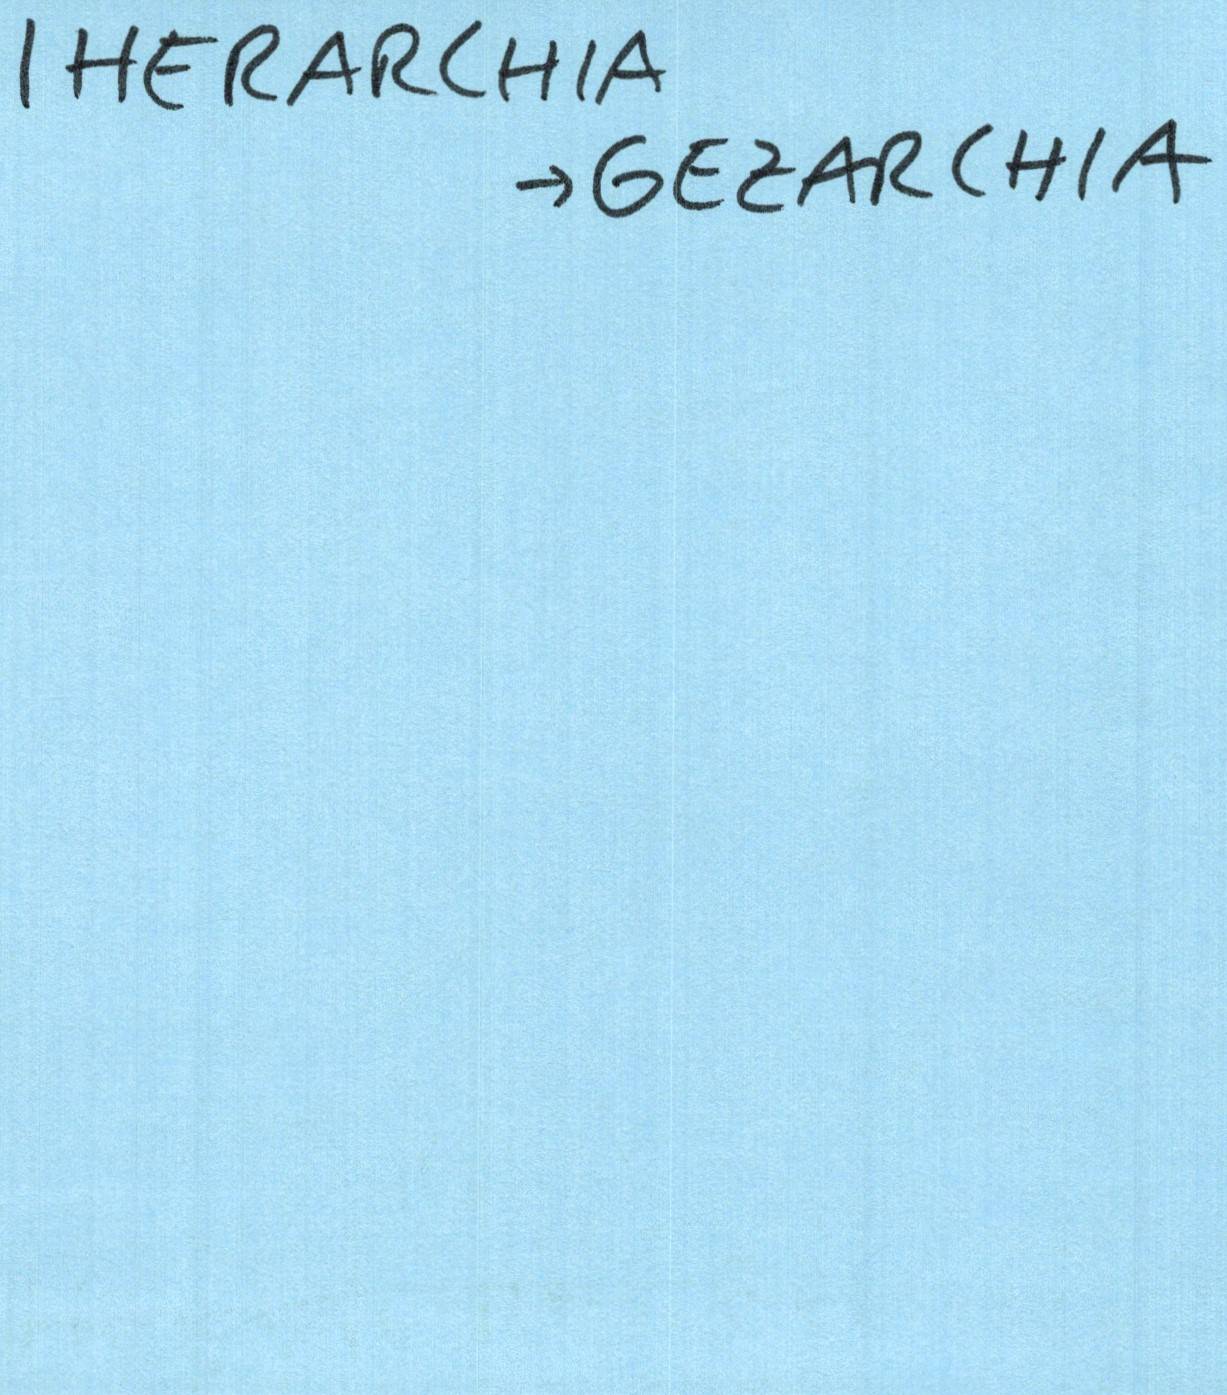 IHERARCHIA
→GEZARCHIA